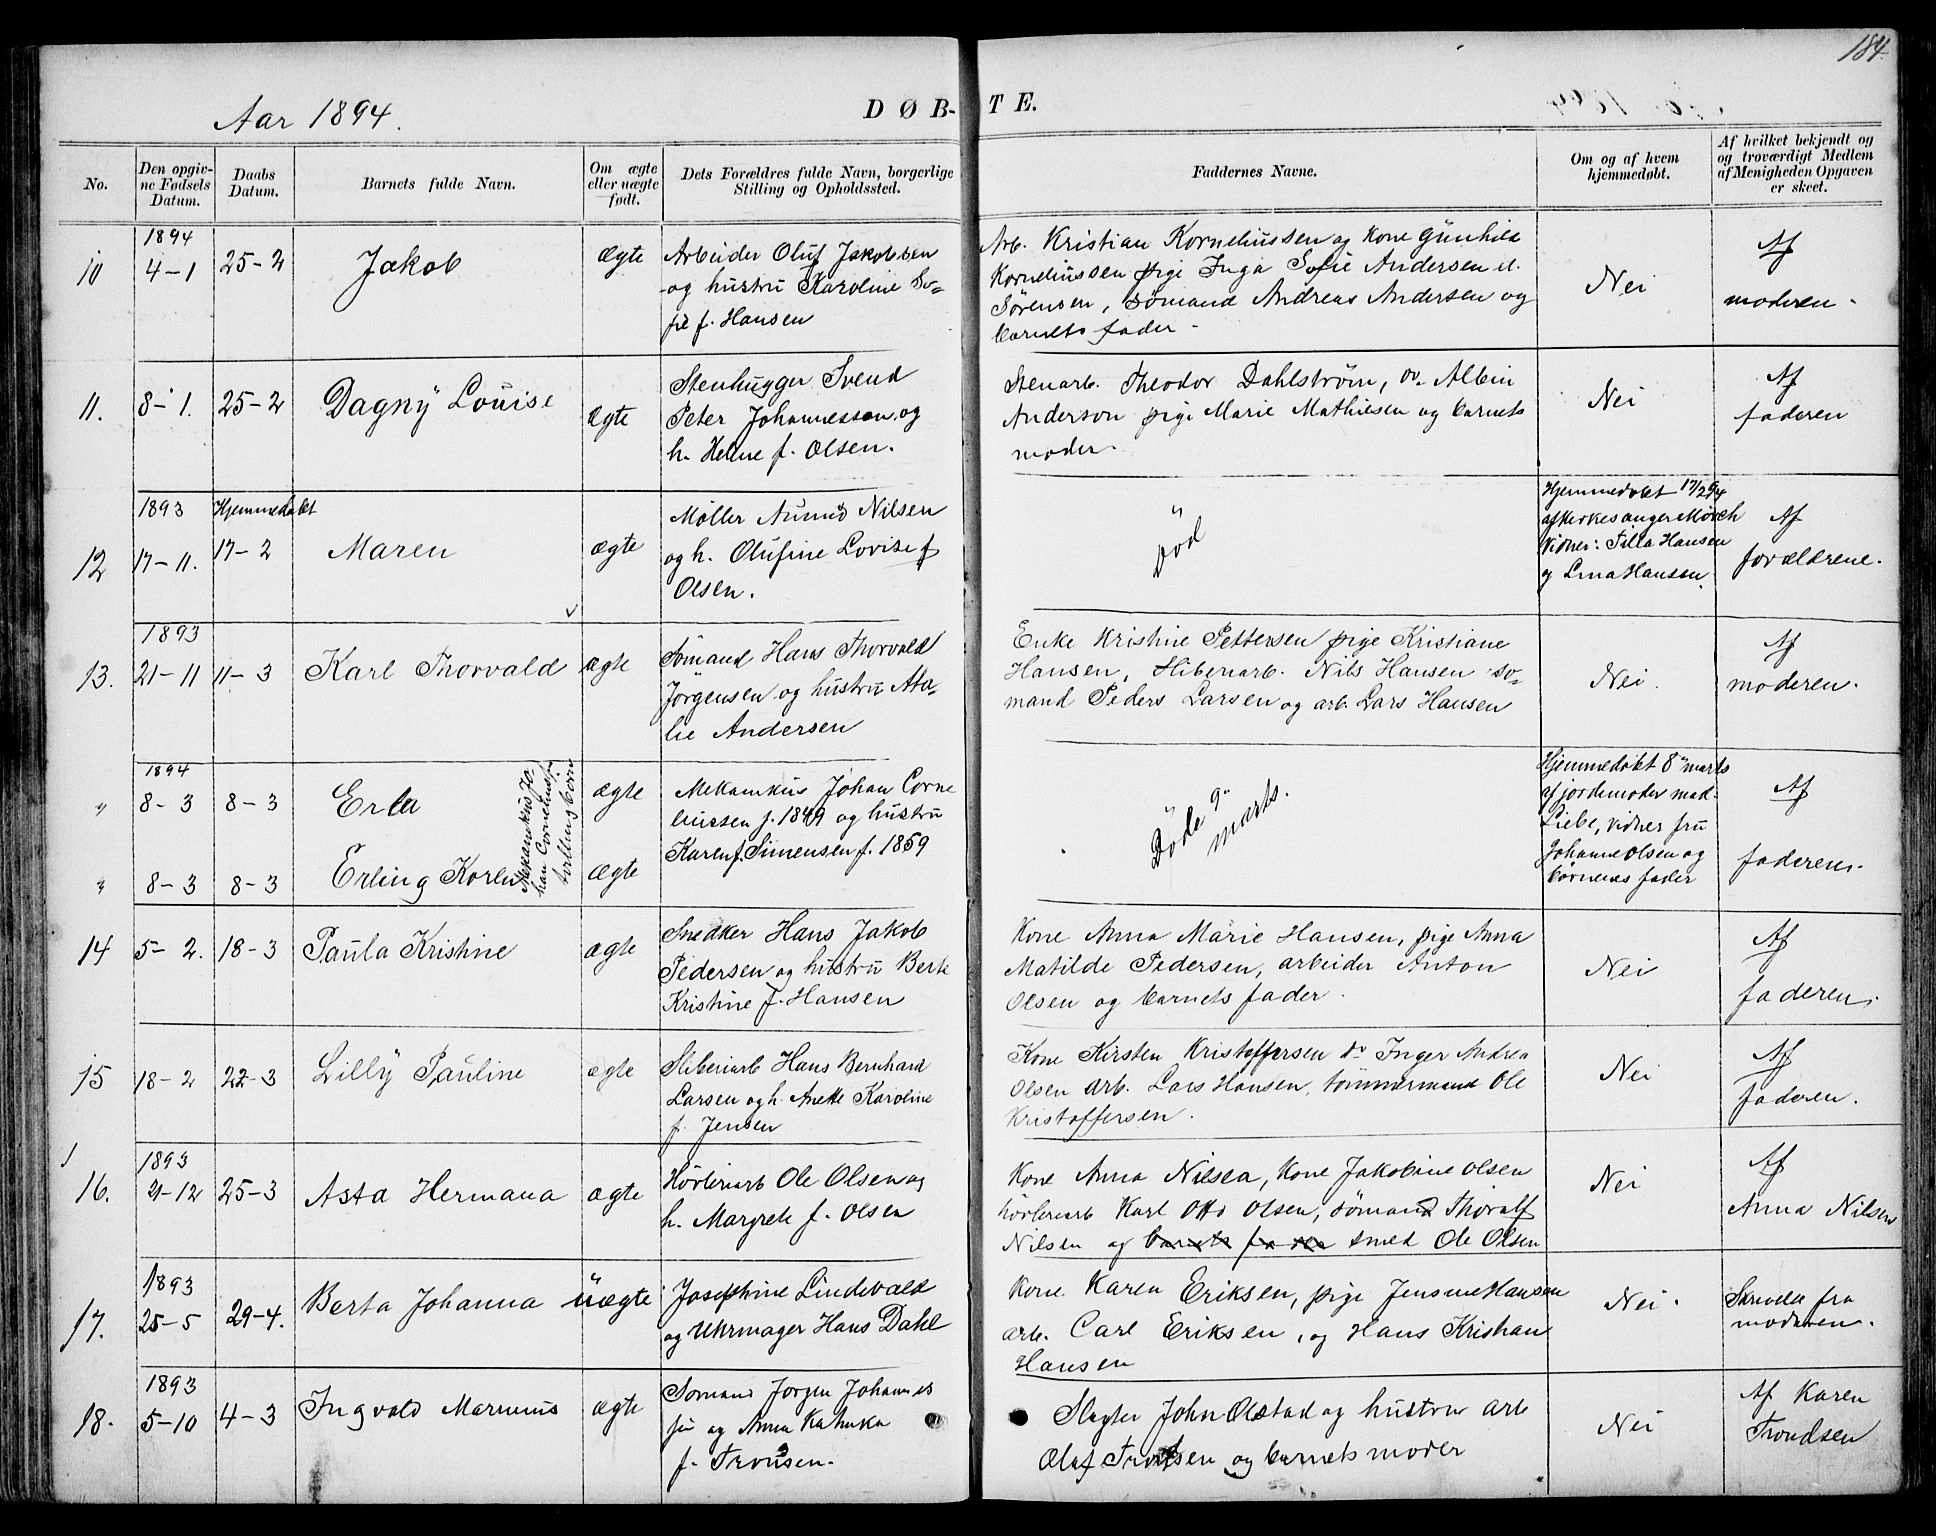 184.
Aar 1894.
DØB-TE.
No.
Den opgivne Fødsels Datum.
Daabs Datum.
Barnets fulde Navn.
Om ægte eller uægte født.
Dets Forældres fulde Navn, borgerlige Stilling og Opholdssted.
Faddernes Navne.
Om og af hvem hjemmedøbt.
Af hvilket bekjendt og og troværdigt Medlem af Menigheden Opgaven er skeet.
10
1894
4-1
25-2
Jakob
Ægte
Arbeider Oluf Jakobsen
og hustru Karoline So-
fie f. Hansen
Arb. Kristian Korneliussen og Kone Gunhild
Korneliussen pige Inga Sofie Andersen
Sørensen, sømand Andreas Andersen og
barnets fader -
Nei
Af
moderen.
11.
8-1.
25-2
Dagny Louise
Ægte
Stenhugger Svend
Peter Johannesson og
h. Helene f. Olsen.
Stenarb. Theodor Dahlstrøm, do. Albin
Anderson pige Marie Mathiesen og barnets
moder.
Nei
Af
faderen
12
1893
17-11.
Hjemmedøbt
17-2
Maren
Ægte
Møller Aumud Nilsen
og h. Olufine Lovise f
Olsen.
Død
Hjemmedøbt 17/2 94
af kirkesanger Mørch
Vidner: Tilla Hansen
og Lina Hansen.
Af
forældrene.
13.
1893
21-11
11-3
Karl Thorvald
Ægte
Sømand Hans Thorvald
Jörgensen og hustru Ata-
lie Andersen
Enke Kristine Pettersen pige Kristiane
Hansen, Sliberiarb. Nils Hansen sø-
mand Peders Larsen og arb. Lars Hansen
Nei.
Af
moderen.
"
1894
8-3
8-3
Erla
Mekanikus Jo
han Corneliussen
tvillingbörn
ægte
Mekanikus Johan Corne
liussen f. 1849 og hustru
Karen f. Simensen f. 1859
Døde 9de
marts.
Hjemmedøbt 8de marts
af jordemoder mad.
Liebe, vidner fru
Johanne Olsen og
börnenes fader
Af
faderen.
"
8-3
8-3
Erling Koren
Ægte
14
5-2.
18-3
Paula Kristine
ægte
Snedker Hans Jakob
Pedersen og hustru Berte
Kristine f. Hansen
Kone Anna Marie Hansen, pige Anna
Matilde Pedersen, arbeider Anton
Olsen og barnets fader.
Nei
Af
faderen.
15
18-2
22-3
Lilly Pauline
ægte
Sliberiarb Hans Bernhard
Larsen og h. Anette Karoline
f. Jensen
Kone Kirsten Kristoffersen do Inger Andrea
Olsen arb. Lars Hansen, tömmermand Ole
Kristoffersen.
Nei
Af
faderen.
16.
1893
21-12
25-3
Asta Hermana
ægte
Høvleriarb Ole Olsen og
h. Margrete f. Olsen
Kone Anna Nilsen, Kone Jakobine Olsen
høvleriarb Karl Otto Olsen, sømand Thoralf
Nilsen og barnets fader smed Ole Olsen
Nei
Af
Anna Nilsen
17.
1893
25-5
29-4.
Berta Johanna
Uægte
Josephine Lindevald
og Uhrmager Hans Dahl
Kone Karen Eriksen, pige Jensine Hansen
arb. Carl Eriksen, og Hans Kristian
Hansen
Nei.
Skrivelse fra
moderen.
18.
1893
5-10
4-3
Ingvald Marinius
ægte
Sømand Jørgen Johannes
og Anna Katinka
f. Tronsen.
Slagter John Olstad og hustru arb
Olaf Trondsen og barnets moder
Nei
Af Karen
Trondsen